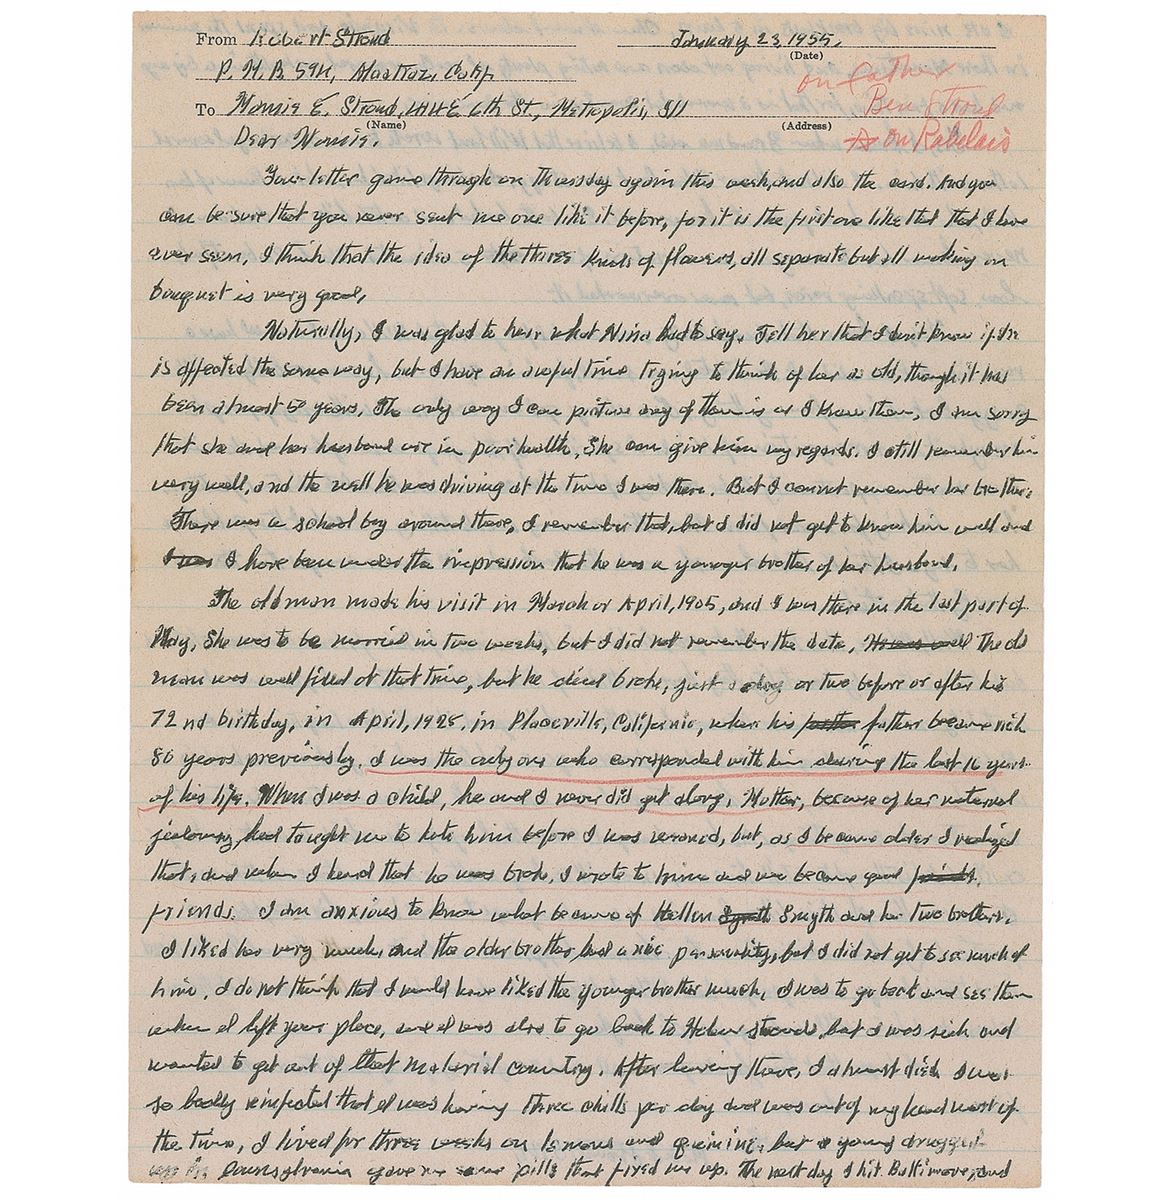 From Robert Stroud January 23, 1955.
(Date)
P. M. B. 594, Alcatraz, Calif
on father
Ben Stroud
To Mamie E. Stroud, E. 6th St, Metropolis, Ill
(Name) (Address)
* on Rabelais
Dear Mamie.
Your letter came through on Thursday again this week, and also the card. And you
can be sure that you never sent me one like it before, for it is the first one like that that I have
ever seen, I think that the idea of the three kinds of flowers, all separate but all making on
bouquet is very good,
Naturally, I was glad to hear what Nina had to say. Tell her that I don't know if she
is affected the same way, but I have an awful time trying to think of her as old, though it has
been almost 50 years, The only way I can picture any of them is as I knew them, I am sorry
that she and her husband are in poor health, She can give him my regards. I still remember him
very well, and the well he was driving at the time I was there. But I cannot remember her brother.
There was a school boy around there, I remember that, but I did not get to know him well and
I was I have been under the impression that he was a younger brother of her husband.
The old man made his visit in March or April, 1905, and I was there in the last part of
May, She was to be married in two weeks, but I did not remember the date, The old
man was well fixed at that time, but he died broke, just a day or two before or after his
72nd birthday, in April, 1928, in Placeville, California, where his father became rich
80 years previously. I was the only one who corresponded with him during the last 16 years
of his life. When I was a child, he and I never did get along, Mother, because of her maternal
jealousy, had taught me to hate him before I was weaned, but, as I became older I realized
that, and when I heard that he was broke, I wrote to him and we became good
friends. I am anxious to know what became of Hellen Smyth and her two brothers.
I liked her very much and the older brother had a nice personality, but I did not get to see much of
him, I do not think that I would have liked the younger brother much, I was to go back and see them
when I left your place, and I was also to go back to Helen but I was sick and
wanted to get out of that malarial country. After leaving there, I almost died I was
so badly infected that I was having three chills per day and was out of my head most of
the time, I lived for three weeks on lemons and quinine, but a young druggist
up in Pennsylvania gave me some pills that fixed me up. The next day I hit Baltimore, and